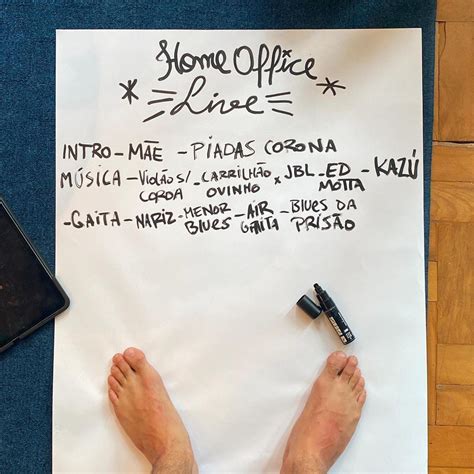 Home Office
* Live *
INTRO - MÃE - PIADAS CORONA
MÚSICA - VIOLÃO S/ COROA - CARRILHÃO OVINHO x JBL - ED MOTTA - KAZÚ
- GAITA - NARIZ - MENOR BLUES - AIR GAITA - BLUES DA PRISÃO